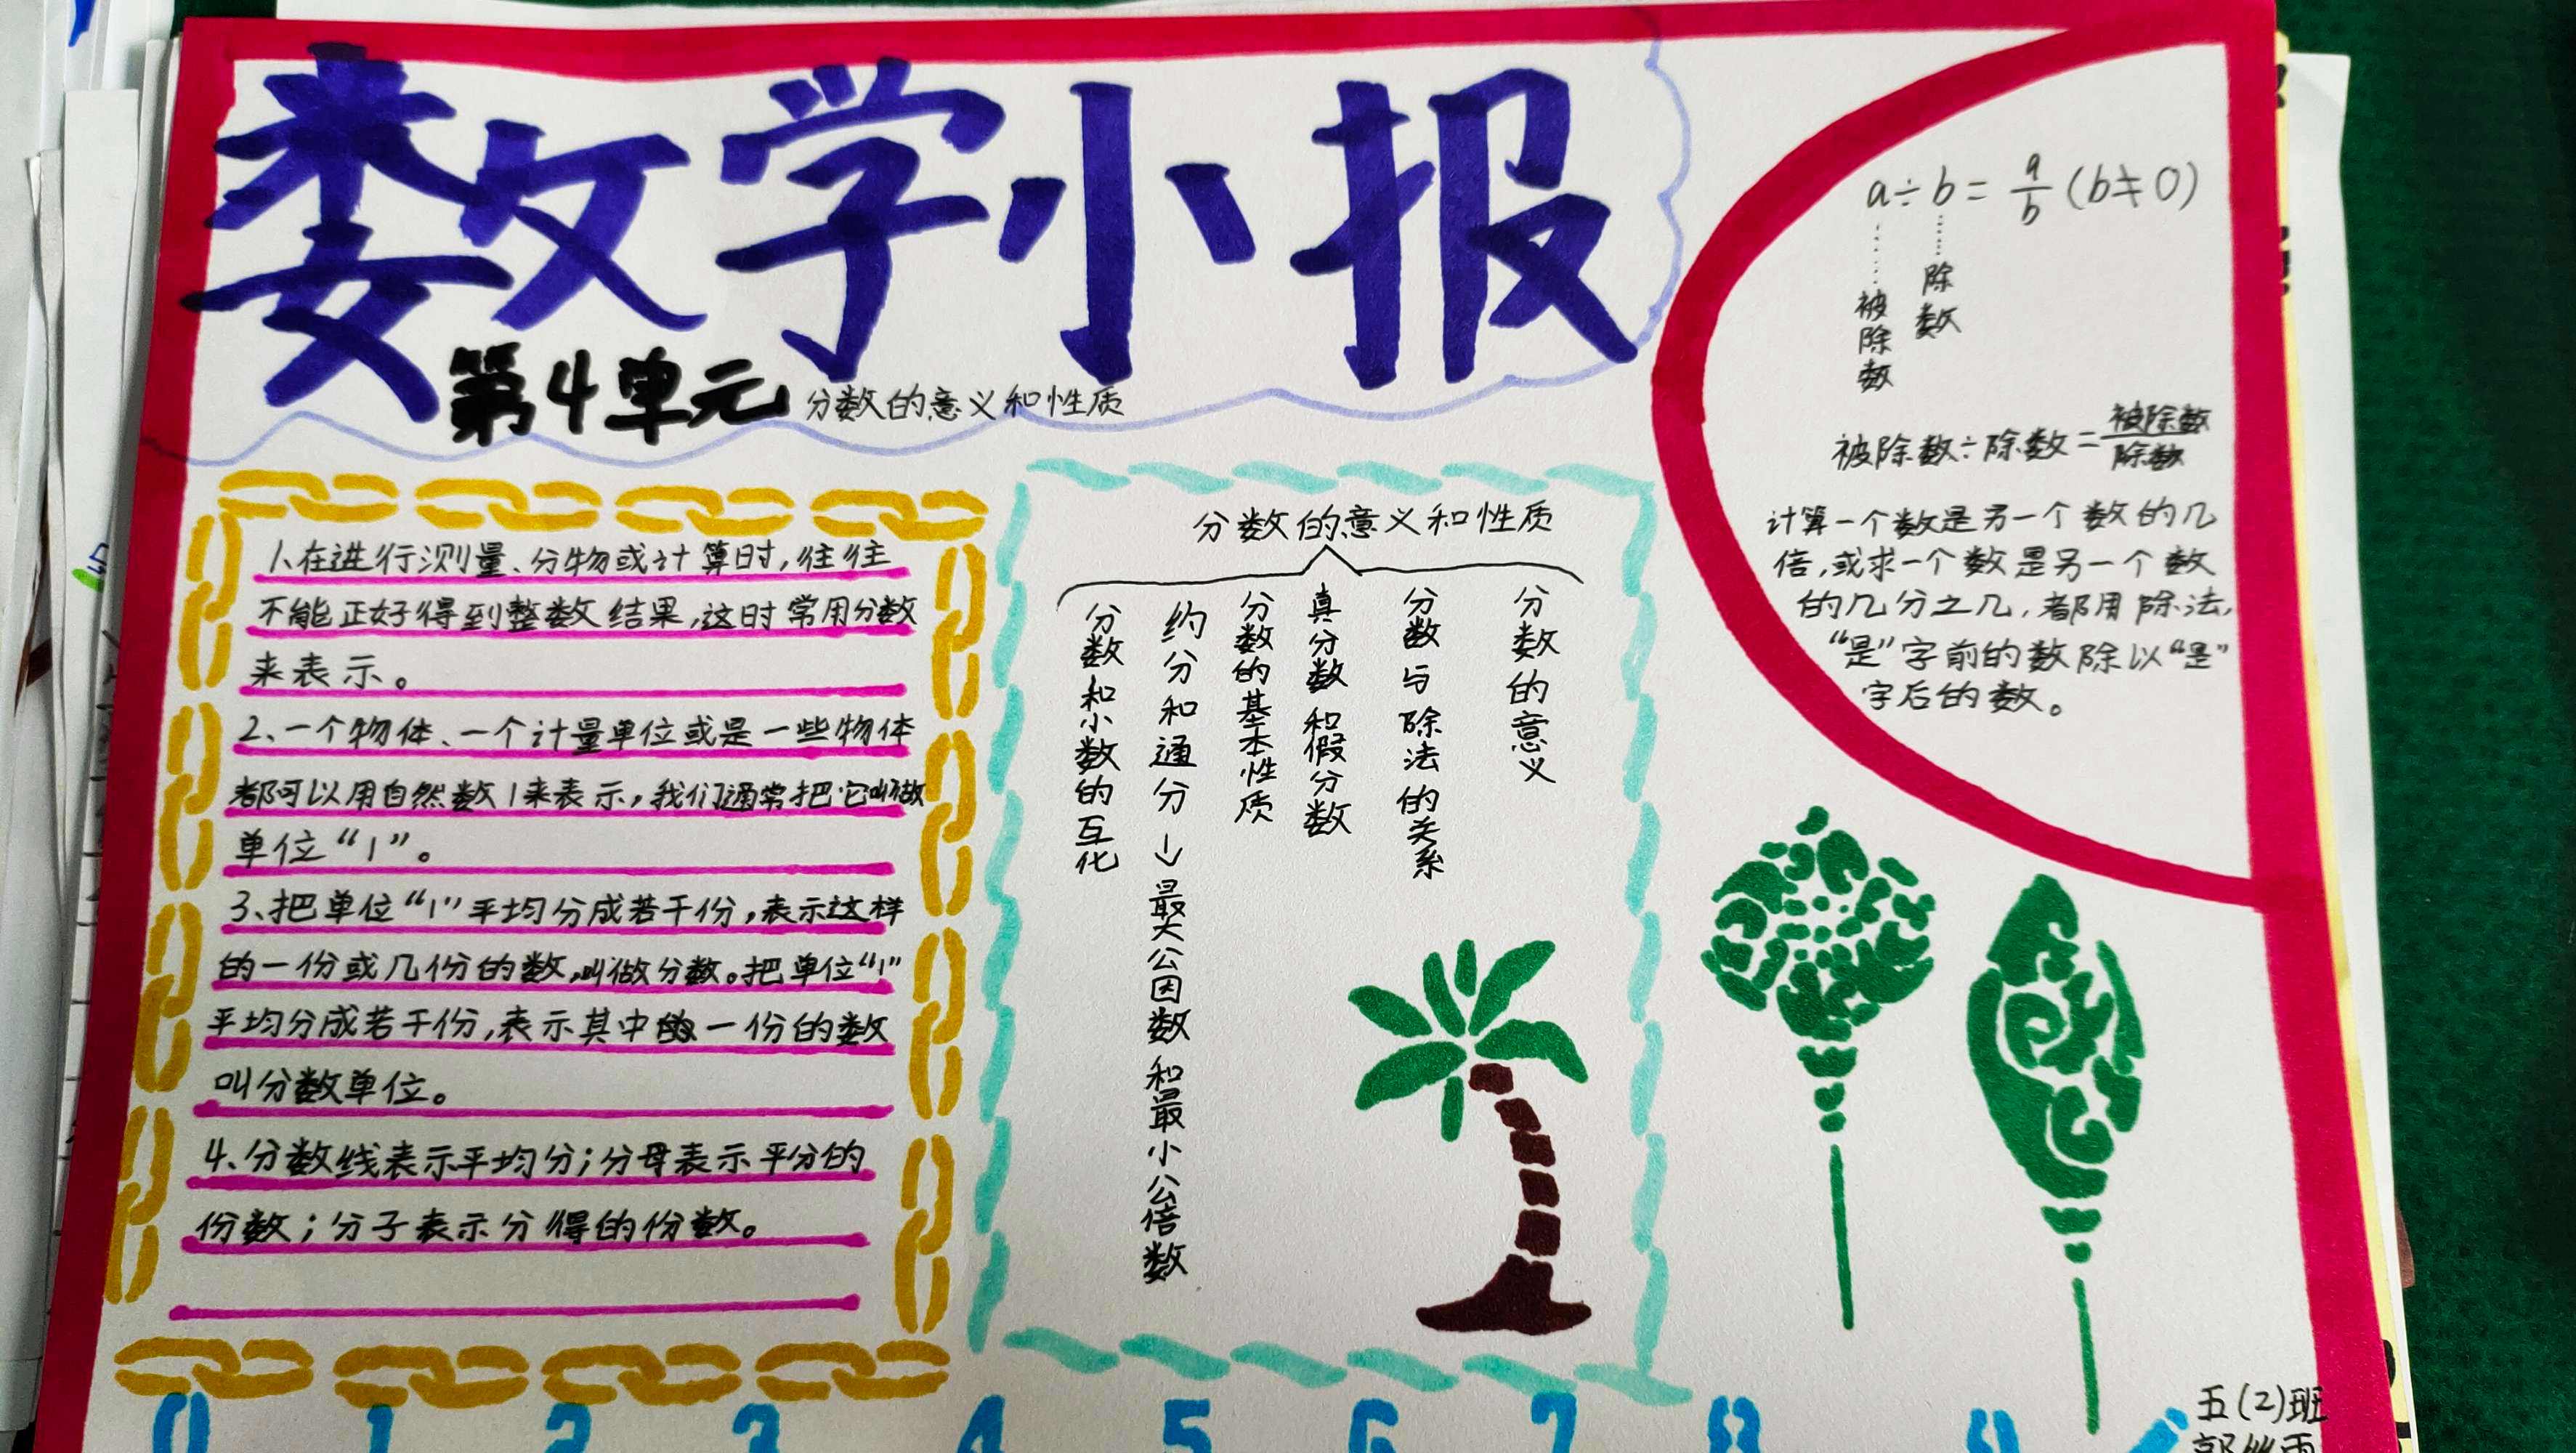 数学小报
第4单元 分数的意义和性质
1、在进行测量、分物或计算时,往往
不能正好得到整数结果,这时常用分数
来表示。
2、一个物体、一个计量单位或是一些物体
都可以用自然数1来表示,我们通常把它叫做
单位“1”。
3、把单位“1”平均分成若干份,表示这样
的一份或几份的数,叫做分数。把单位“1”
平均分成若干份,表示其中的一份的数
叫分数单位。
4、分数线表示平均分;分母表示平分的
份数;分子表示分得的份数。
分数的意义和性质
分数和小数的互化
约分和通分→最大公因数和最小公倍数
分数的基本性质
真分数和假分数
分数与除法的关系
分数的意义
a÷b=a/b(b≠0)
被除数
除数
被除数÷除数=被除数/除数
计算一个数是另一个数的几
倍,或求一个数是另一个数
的几分之几,都用除法,
“是”字前的数除以“是”
字后的数。
0 1 2 3 4 5 6 7 8 9
五(2)班